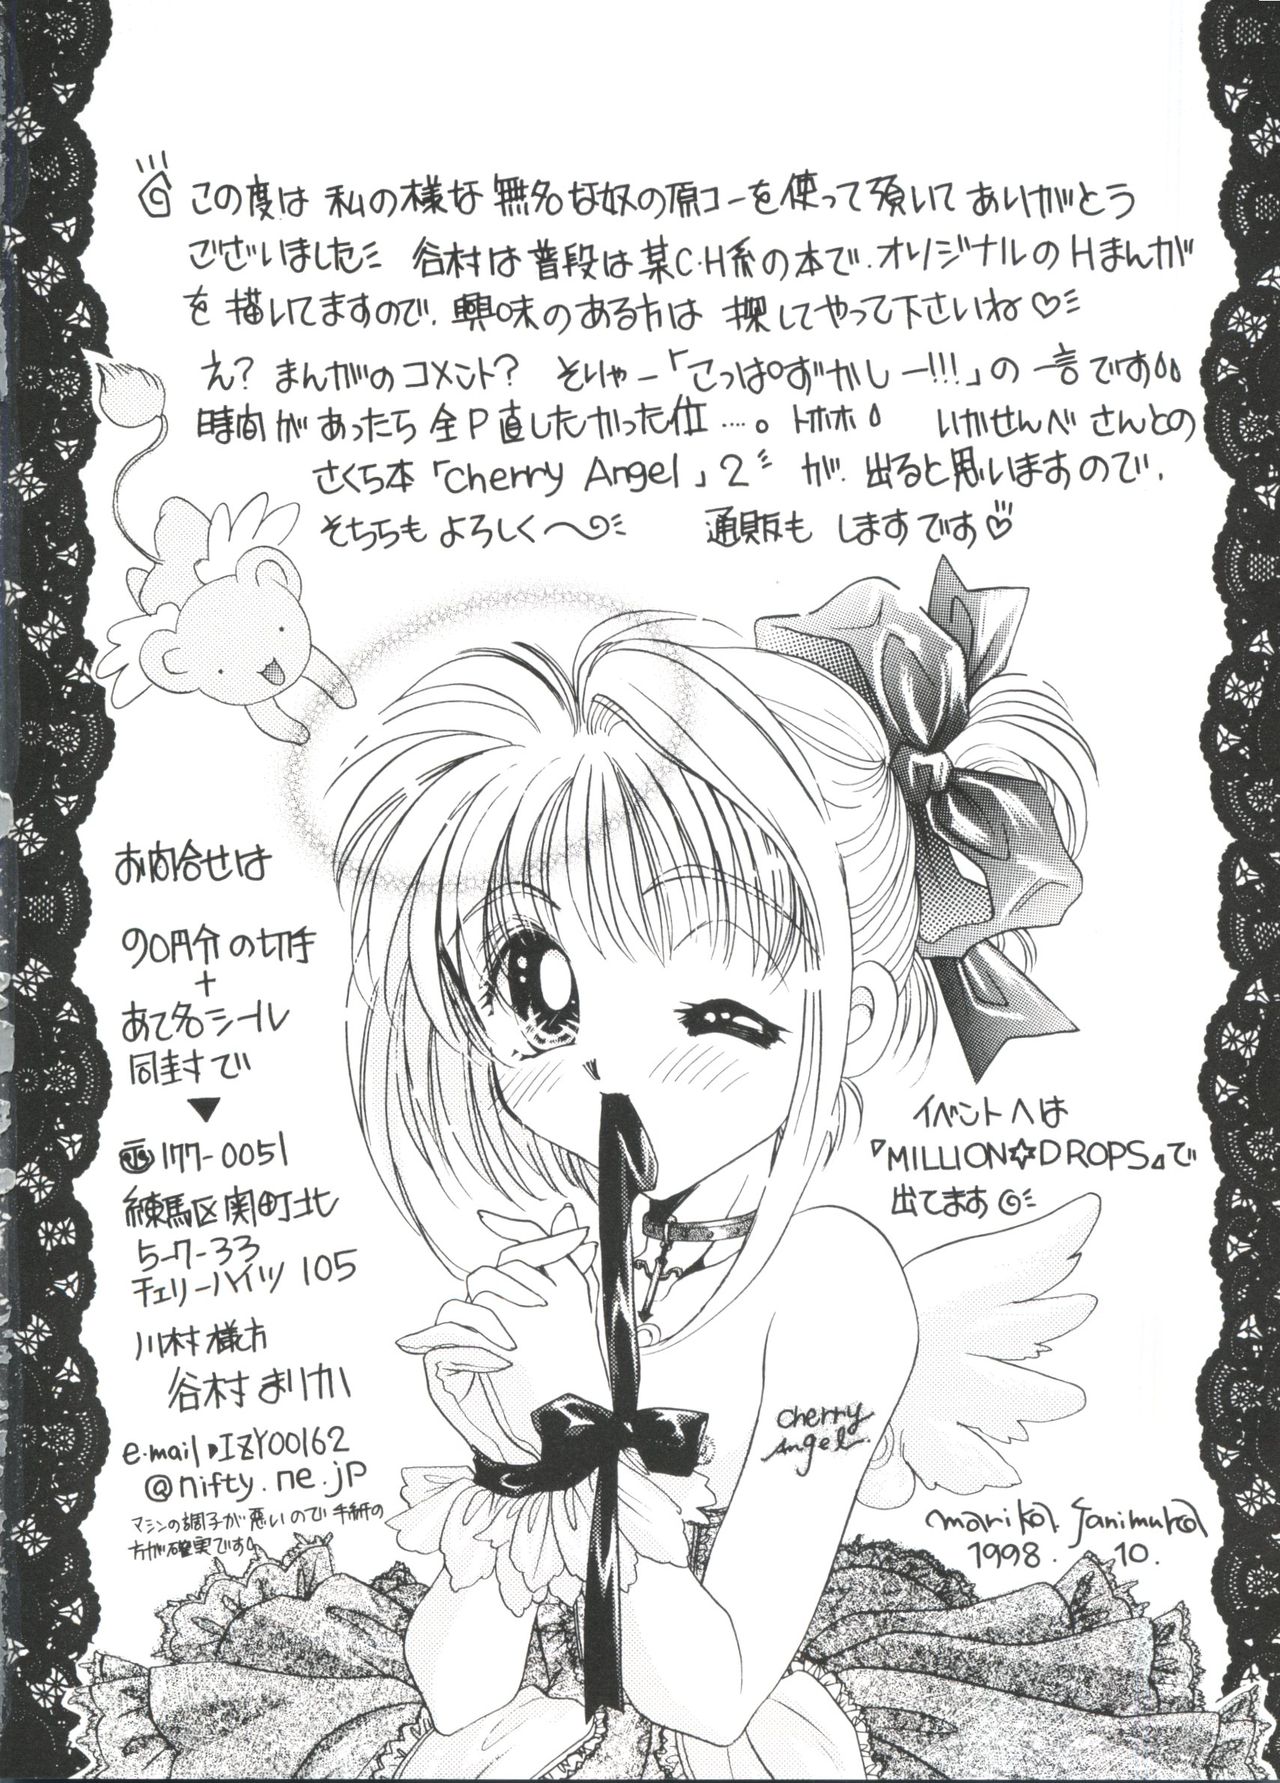 この度は 私の様な 無名な奴の原コーを使って頂いて ありがとう
ございました 谷村は普段は某C・H系の本で、オリジナルのHまんが
を描いてますので、興味のある方は 探してやって下さいね♡
え? まんがのコメント? そりゃー「こっぱずかしー!!!」の一言です
時間があったら全P直したかった位…。トホホ いかせんべさんとの
さくら本「Cherry Angel」2 が、出ると思いますので、
そちらも よろしく〜 通販も しますです♡
お問合せは
90円分の切手
+
あて名シール
同封で
▼
〒177-0051
練馬区関町北
5-7-33
チェリーハイツ 105
川村様方
谷村まりか
e-mail▶IZY00162
@nifty.ne.jp
マシンの調子が悪いので手紙の
方が確実です
イベントへは
『MILLION☆DROPS』で
出てます
Cherry
Angel.
marika. Tanimura
1998. 10.